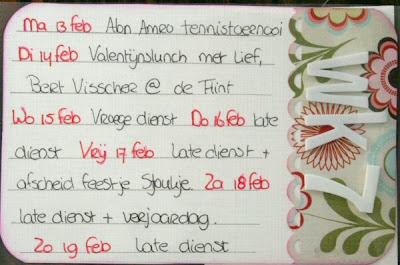 Ma 13 feb Abn Amro tennistoernooi
Di 14 feb Valentijnslunch met Lief,
Bert Visscher @ de Flint
Wo 15 feb Vroege dienst Do 16 feb late
dienst Vrij 17 feb late dienst +
afscheid feestje Sjoukje. Za 18 feb
late dienst + verjaardag.
Zo 19 feb late dienst
WK 7